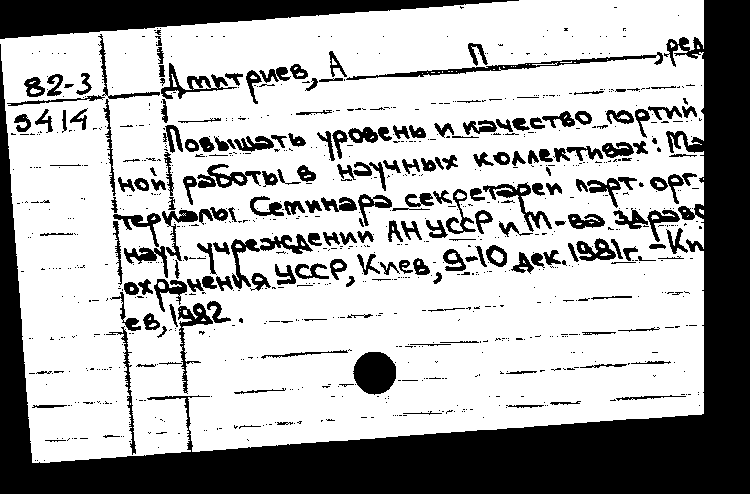 82-3
5414
Дмитриев, А П , ред
Повышать уровень и качество партий-
ной работы в научных коллективах: Ма
териалы Семинара секретарей парт. орг-
науч. учреждений АН УССР и М-ва здраво
охранения УССР, Киев, 9-10 дек. 1981г. - Ки
ев, 1982.